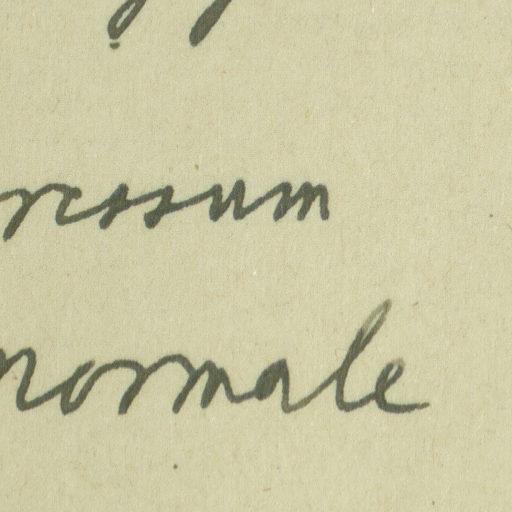 ressum
normale